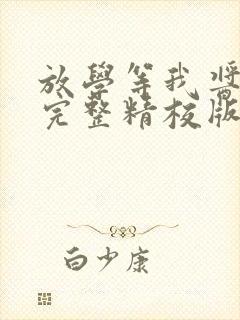 放學等我 將
完整精校版
白少康